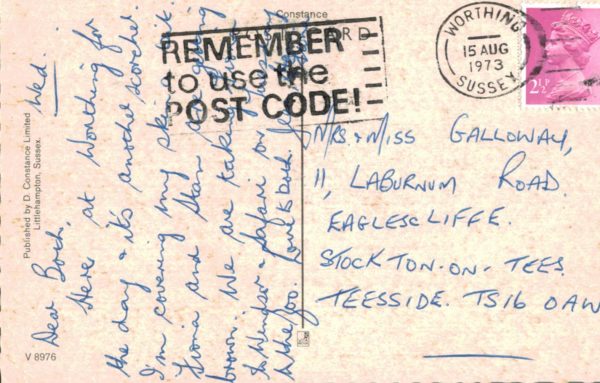 Constance
POSTCARD
REMEMBER
to use the
POST CODE!
WORTHING
15 AUG
1973
SUSSEX
2½
Published by D. Constance Limited
Littlehampton, Sussex.
V 8976
Wed.
Dear Both,
Here at Worthing for
the day & it's another scorcher.
I'm covering my skin but
Fiona and Stan are going
brown. We are taking
to Windsor & Safari on
& the Zoo. Love to both.
MRS. & MISS GALLOWAY,
11, LABURNUM ROAD.
EAGLESCLIFFE.
STOCKTON-ON-TEES
TEESSIDE. TS16 0AW